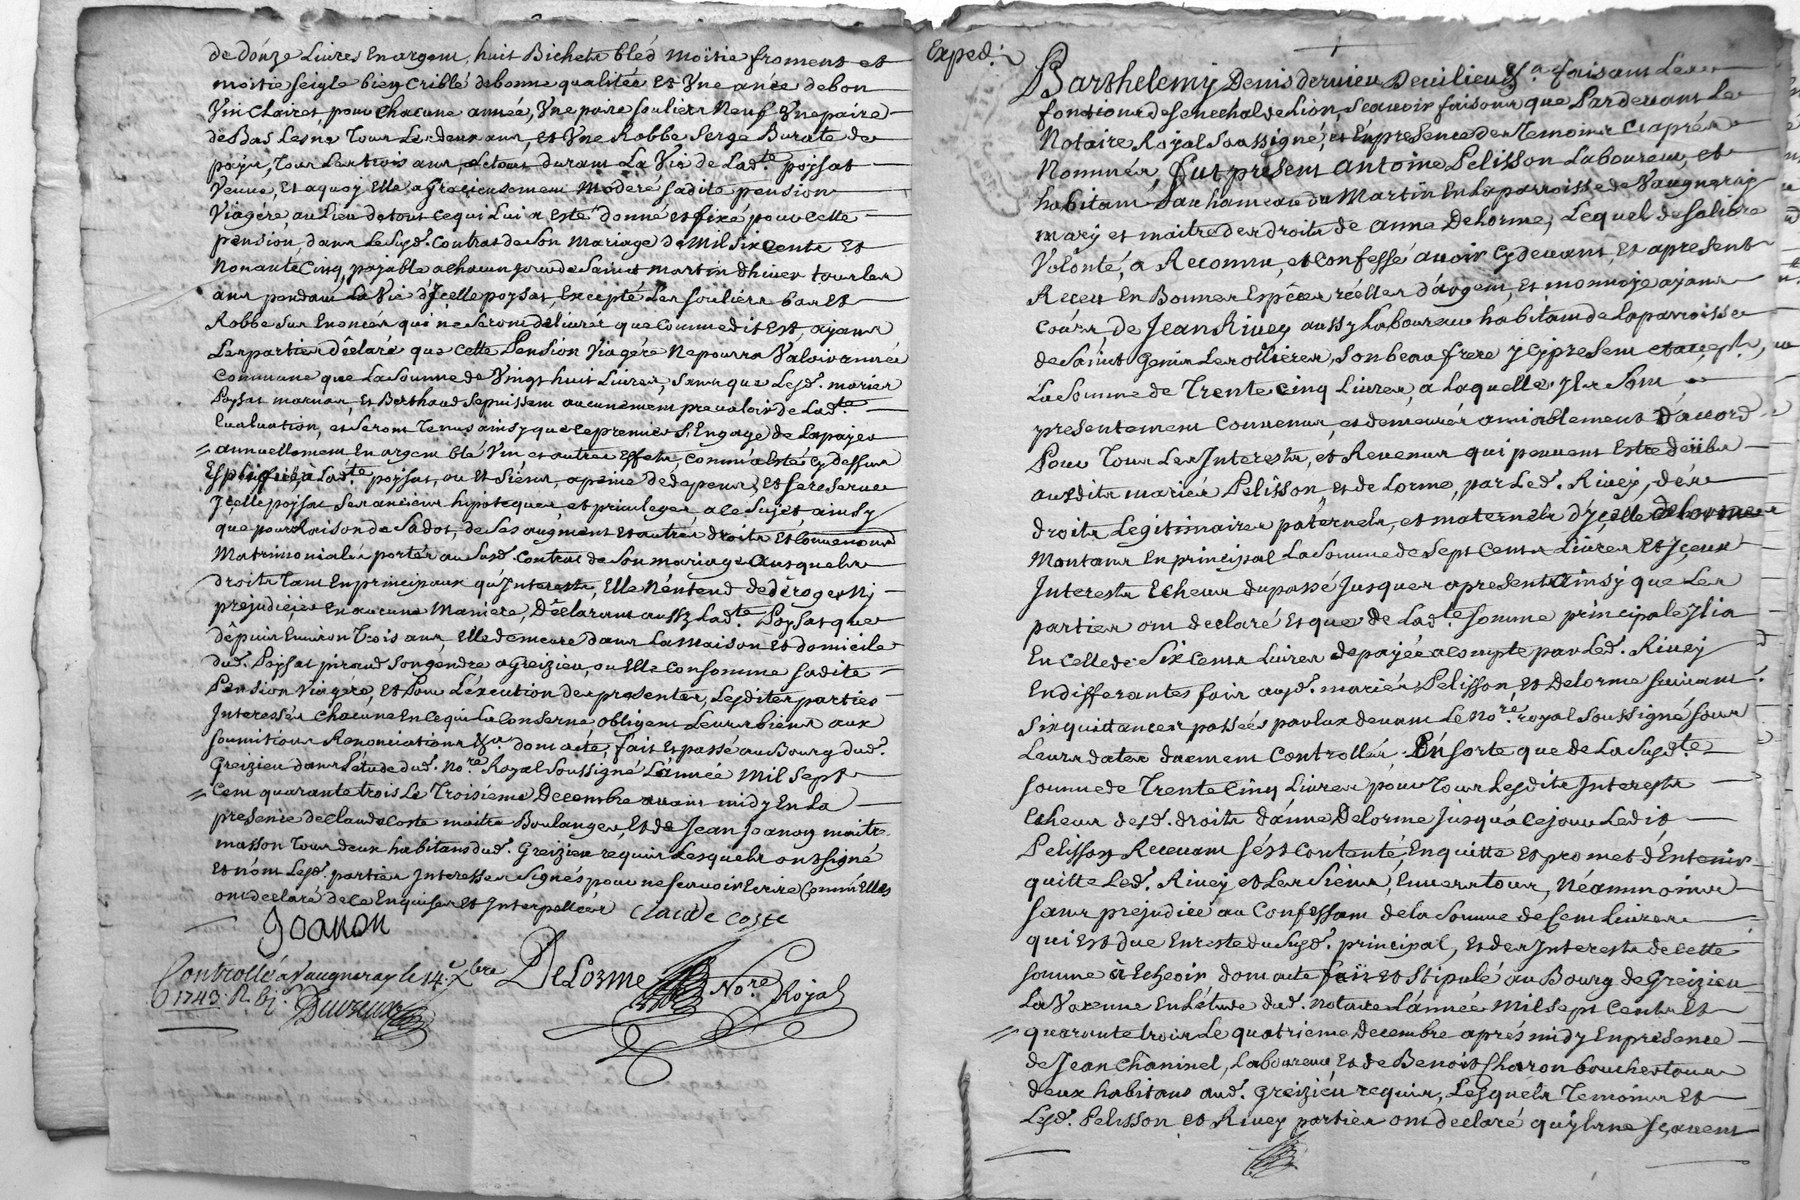 de douze Livres En argent, huit Bichets bléd moitie froment et
moitie seigle bien Criblé de bonne qualitée Et Une anée de bon
Vin Clairet, pour Chacune année, Une paire souliers Neuf, Une paire
de Bas Lesne Tous Les deux ans, et Une Robbe serge Burate de
poÿs, Tous Les trois ans, Le tout durant La Vie de Lad.te poysat
Veuve, Et aquoy Elle a Gratieusement Moderé sadite pension
Viagére au Lieu de tout ce qui Lui a Esté donné et fixé pour cette
pension, dans Le Susd. Contrat de Son Mariage de Mil Six Cents Et
Nonante Cinq, payable a chacun jour de Saint Martin d'hiver tous les
ans pendant La Vie d'Jcelle poysat, Excepté Les souliers bas Et
Robbe sus Enoncés qui ne Seront delivrés que Comme dit Est, ayant
Les parties dêclaré que Cette Pension Viagére Ne pourra Valoir année
Commune que La Somme de Vingt huit Livres, Sans que Lesd. mariés
Poysat et Berthaud se puissent aucunement prevaloir de Lad.te
Evaluation, et seront Tenus ainsy que le premier s'Engage de La payer
annuellement En argent blé Vin et autres Effets, Comm'a Esté cy dessus
à Lad.te poysat, ou Et Siens, a peine de depens, Et se reserve
Jcelle poysat Ses anciens hipoteques, et privileges a ce Sujet ainsy
que pour Raison de Sa dot, de Ses augment Et autres droits Et Convenons
Matrimoniales portés au Susd. Contrat de son mariage Ausquels
droits Tant En principaux qu'Jnterests, Elle N'entend dedêroger Ny
prejudicier En aucune Maniere, Dêclarant aussy Lad.te Poysat que
dêpuis Environ Trois ans, Elle demeure dans La Maison Et domicile
dud. Poysat piraud Son gendre a Greizieu, ou Elle Consomme sadite
Pension Viagére, Et Pour L'éxécution des presentes, Lesdites parties
Interessées Chacune En ce qui La Conserne, obligent Leurs biens aux
soumitions Renonciations &.a dont acte, fait Et passé au Bourg dud.
Greizieu dans L'etude dud. No.re Royal Soussigné L'année Mil Sept
Cent quarante trois Le Troisieme Decembre avant midy En La
presence de Claude Coste maitre Boulanger, Et de Jean Joanon maitre
masson Tous deux habitans dud. Greizieu requis Lesquels ont signé
Et nom Lesd. parties Jnteressées Signés pour ne Scavoir Ecrire Comm'Elles
ont declaré de ce Enquises Et Interpellées Claude Coste
Joanon
DeLorme No.re Royal
Controllé a Vaugneray le 14.e Xbre
1743. R.
Exped.
Barthelemy Denis dervieu Devilieu &.a faisant Les
fonctions de Senechal de Lion, Scavoir faisons que Pardevant Le
Notaire Royal Soussigné, et En presence des Temoins Ciaprés
Nommés, fut present Antoine Pelisson Laboureur, et
habitant au hameau du Martin En La parroisse de Vaugneray
mary et maitre des droits de anne Delorme, Lequel de sa libre
Volonté, a Reconnu, et Confessé avoir Cydevant, Et apresent
Receu En Bonnes Espêces réelles d'argent, et monnoye ayant
Cours de Jean Rivey aussy Laboureur habitant de La parroisse
de Sainct Genis Les ollieres, Son beau frere jcy present et accept.
La Somme de Trente Cinq Livres, a Laquelle Jls Sont
presentement Convenus, et demeurés amiablement d'accord
Pour Tous Les Jnterests, et Revenus qui peuvent Estre deübs
ausdits mariés Pelisson, et de Lorme, par Led. Rivey, des
droits Legitimaires paternels, et maternels d'Jcelle delorme
Montant En principal La Somme de Sept Cents Livres Et Jceux
Jnterests Echeus du passé Jusques apresent, ainsy que Les
parties ont declaré Et que de Lad.te Somme principale Jl ia
En Celle de Six Cents Livres de payée acompte par Led. Rivey
En differantes fois ausd. mariés Pelisson Et Delorme suivant
Six quittances passées par Eux devant Le No.re royal Soussigné sous
Leurs dates duement Controllés. En sorte que de La Susd.te
somme de Trente Cinq Livres pour Tous Lesdits Jnterests
Echeus desd. droits d'anne Delorme jusqu'a Ce jour Ledit
Pelisson Recevant s'est Contenté, En quitte Et promet d'En tenir
quitte Led. Rivey, et Les Siens, Envers tous, Néammoins
sans prejudice au Confessant de la Somme de Cent Livres
qui Est due En reste du Susd. principal, Et des Jnterests de Cette
Somme à Echeoir dont acte fait et Stipulé au Bourg de Greizieu
La Varenne En L'étude dud. Notaire L'année Mil Sept Cents Et
quarante trois Le quatrieme Decembre aprés midy En presence
de Jean Chaninel, Laboureur Et de Benoit Charon boucher tous
deux habitans aud. Greizieu requis, Lesquels Temoins Et
Lesd. Pelisson et Rivey parties ont declaré qu'ils ne sçavent